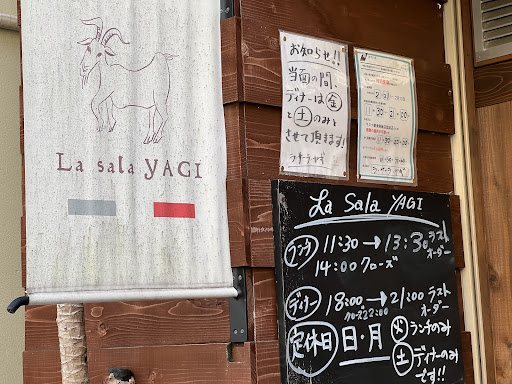 La sala YAGI
お知らせ!!
当面の間、
ディナーは金
と土のみと
させて頂きます!
ラ・サーラ・ヤギ
La Sala YAGI
ランチ 11:30→13:30 ラスト
オーダー
14:00 クローズ
ディナー 18:00→21:00 ラスト
オーダー
クローズ22:00
定休日 日・月 火ランチのみ
土ディナーのみ
です!!